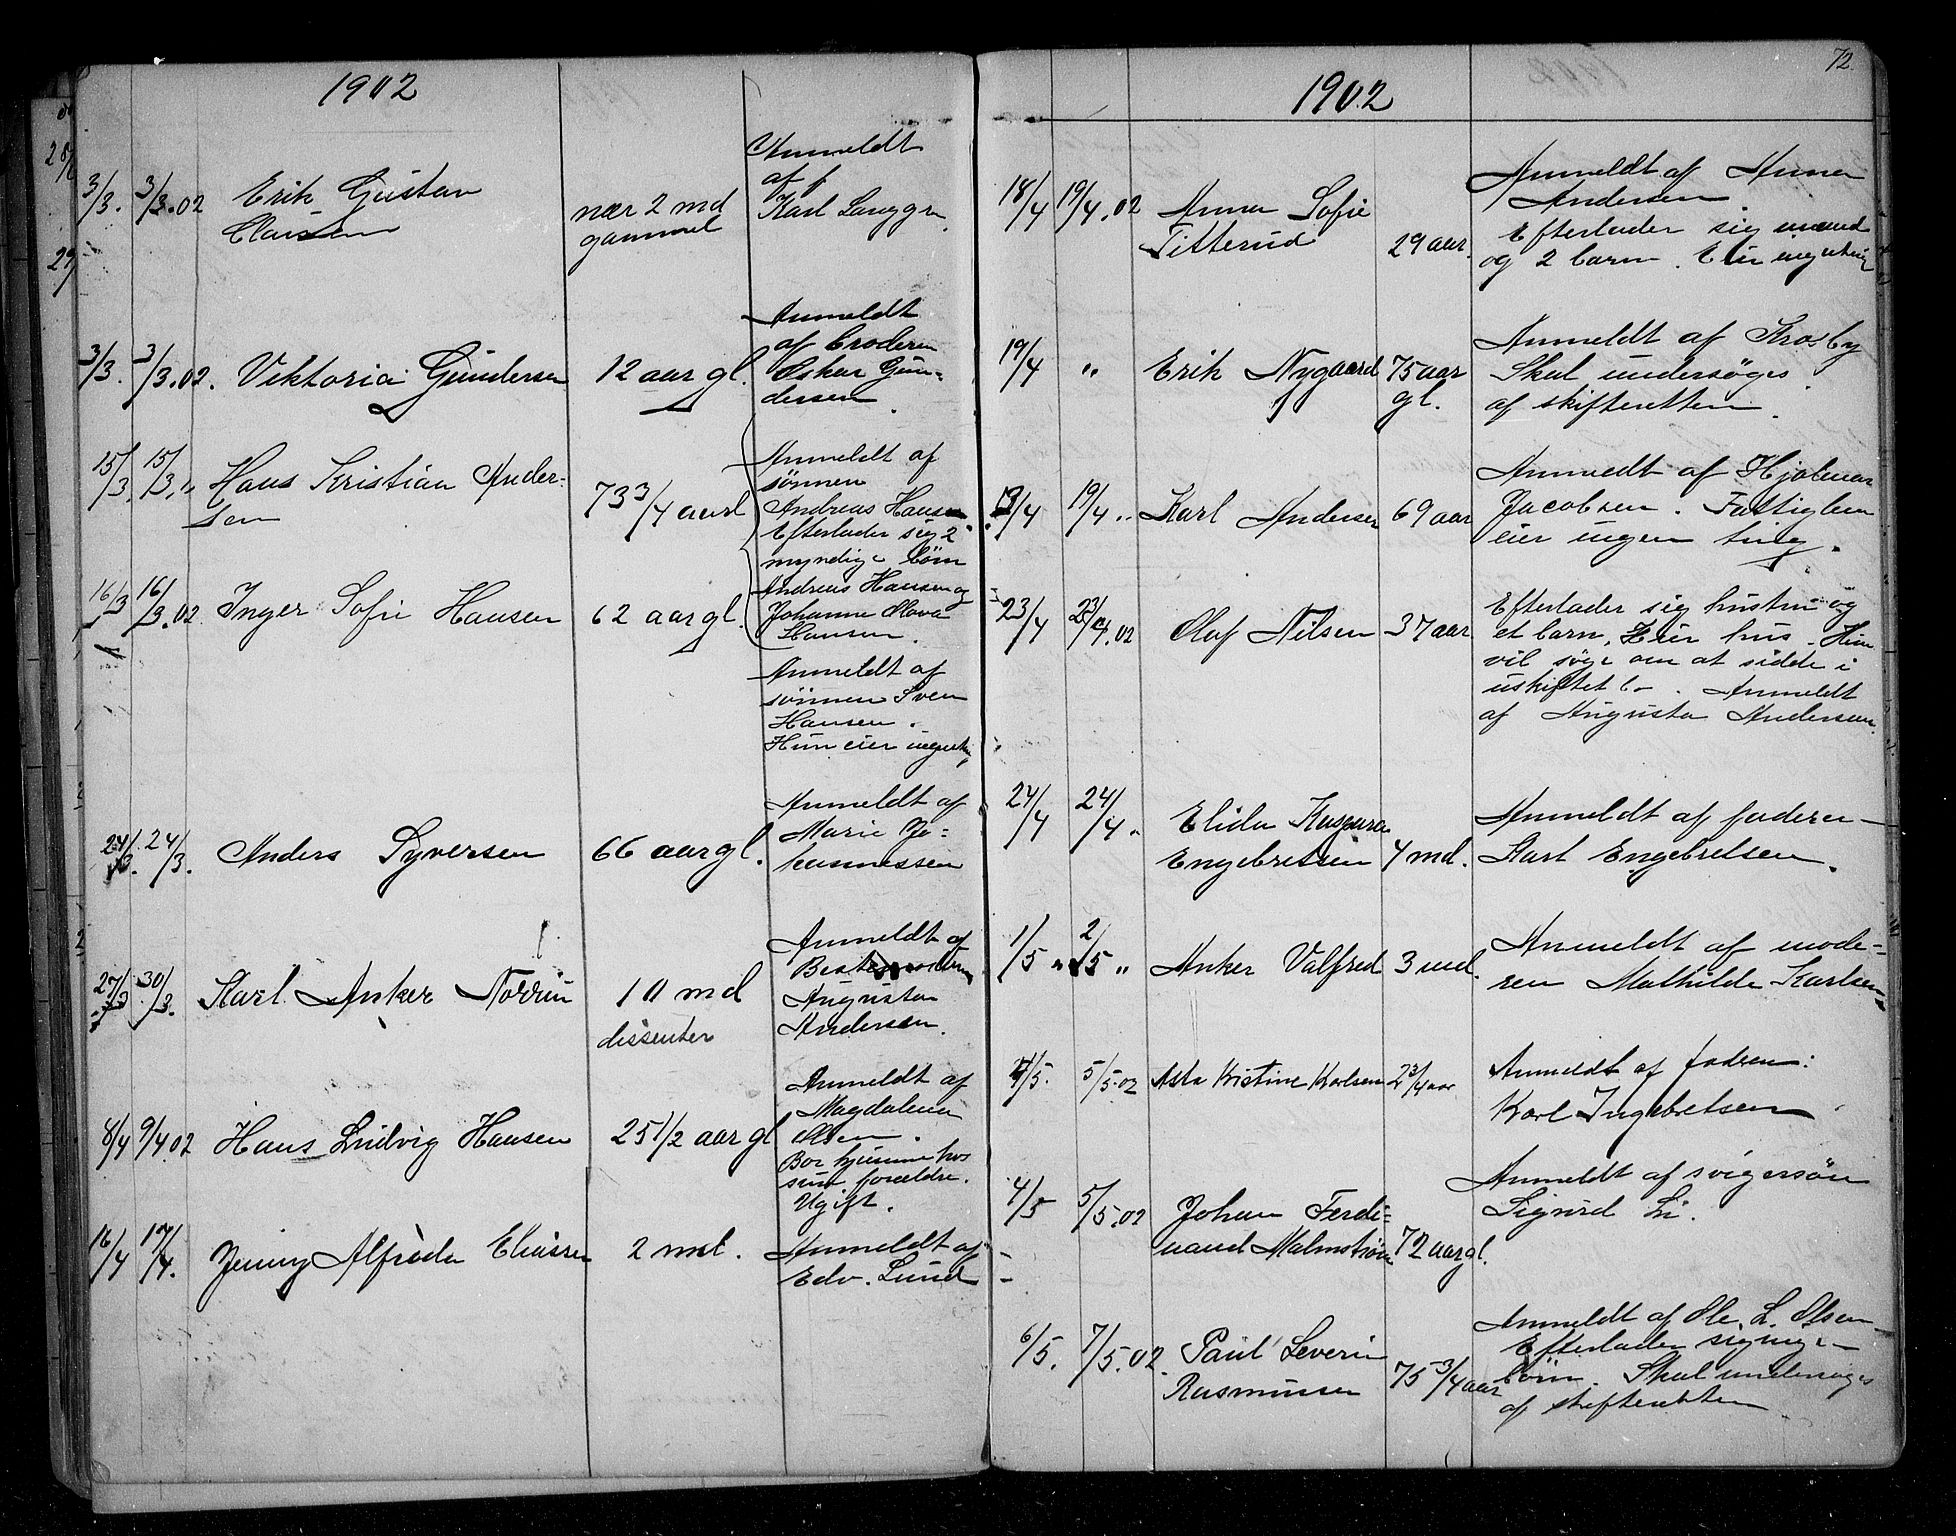 1902
3/3. 3/3.02 Erik Gustav
Clausen
nær 2 md
gammel
Anmeldt
af
Karl Langgr
3/3. 3/3.02. Viktoria Gundersen 12 aar gl.
Anmeldt
af broderen
Oskar Gun-
dersen.
15/3. 15/3. " Hans Kristian Ander-
sen
73 3/4 aar
Anmeldt af
sønnen
Andreas Hansen
Efterlader sig 2
myndige børn
Andreas Hansen og
Johanne
Hansen.
16/3 16/3.02 Inger Sofie Hansen 62 aar gl.
Anmeldt af
sønnen Sven
Hansen.
Hun eier ingenting
24/3. 24/3. Anders Syversen 66 aar gl.
Anmeldt af
Marie Jo-
hannessen
27/3 30/3. Karl Anker 10 md
dissenter
Anmeldt af
Bestemoderen
Augusta
Andersen.
8/4 9/4 02 Hans Ludvig Hansen 25 1/2 aar gl
Anmeldt af
Magdalena
Olsen.
Bor hjemme hos
sine forældre.
Ugift.
16/4 17/4. Jenny Alfrida Eliassen 2 md.
Anmeldt af
Edv. Lund
72.
1902
18/4 19/4.02 Anna Sofie
Titterud
29 aar.
Anmeldt af Anna
Andersen.
Efterlader sig mand
og 2 barn. Eier ingenting
19/4 " Erik Nygaard 75 aar
gl.
Anmeldt af Frosby
Skal undersøges
af skifteretten.
19/4 19/4 " Karl Andersen 69 aar
Anmeldt af Hjalmar
Jacobsen. Fattiglem
eier ingen ting.
23/4 23/4.02 Olaf Nilsen 37 aar
Efterlader sig hustru og
et barn. Eier hus. Hun
vil søge om at sidde i
uskiftet bo. Anmeldt
af Augusta Andersen.
24/4 24/4 " Elida
Engebretsen 4 md.
Anmeldt af faderen
Karl Engebretsen.
1/5 " 2/5 " Anker Valfred 3 md.
Anmeldt af mode-
ren Mathilde Karlsen
4/5. 5/5.02 Asta Kristine Karlsen 2 3/4 aar
Anmeldt af fadren:
Karl Ingebretsen
4/5 5/5.02 Johan Ferdi-
nand Malmstrøm 72 aar gl.
Anmeldt af svigersøn
Sigurd Li.
6/5. 7/5.02. Paul Severin
Rasmussen 75 3/4 aar
Anmeldt af Ole L. Olsen
Efterlader sig
børn. Skal undersøges
af skifteretten